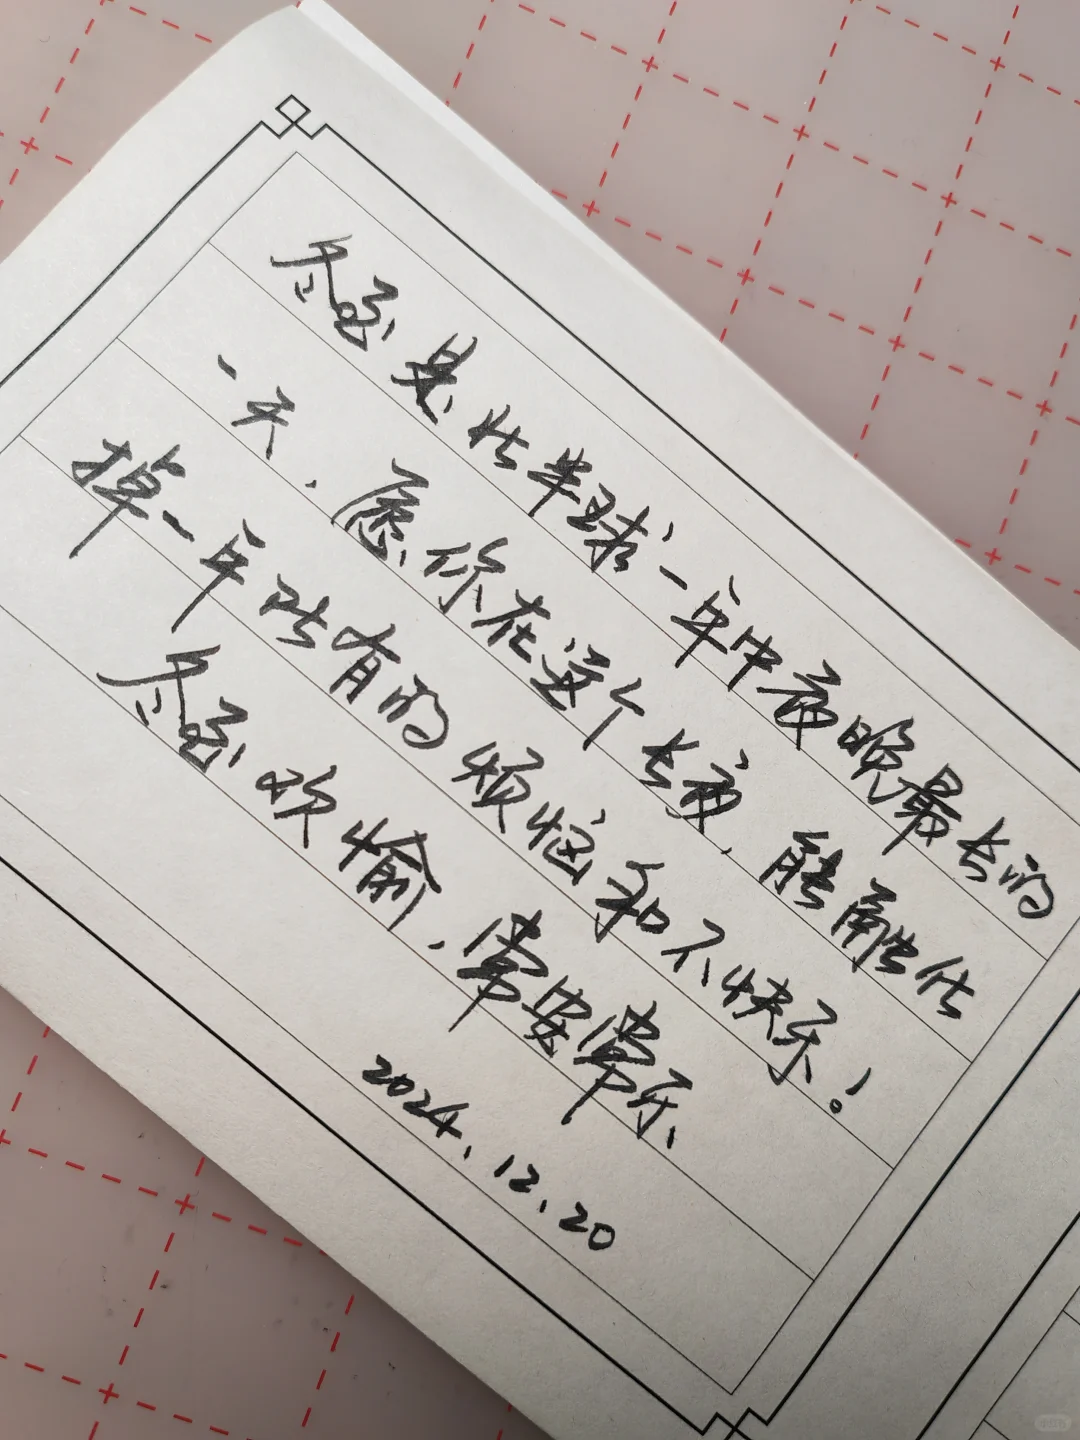 冬至是北半球一年中夜晚最长的
一天，愿你在这个长夜，能融化
掉一年所有的烦恼和不快乐！
冬至欢愉，常安常乐
2024.12.20